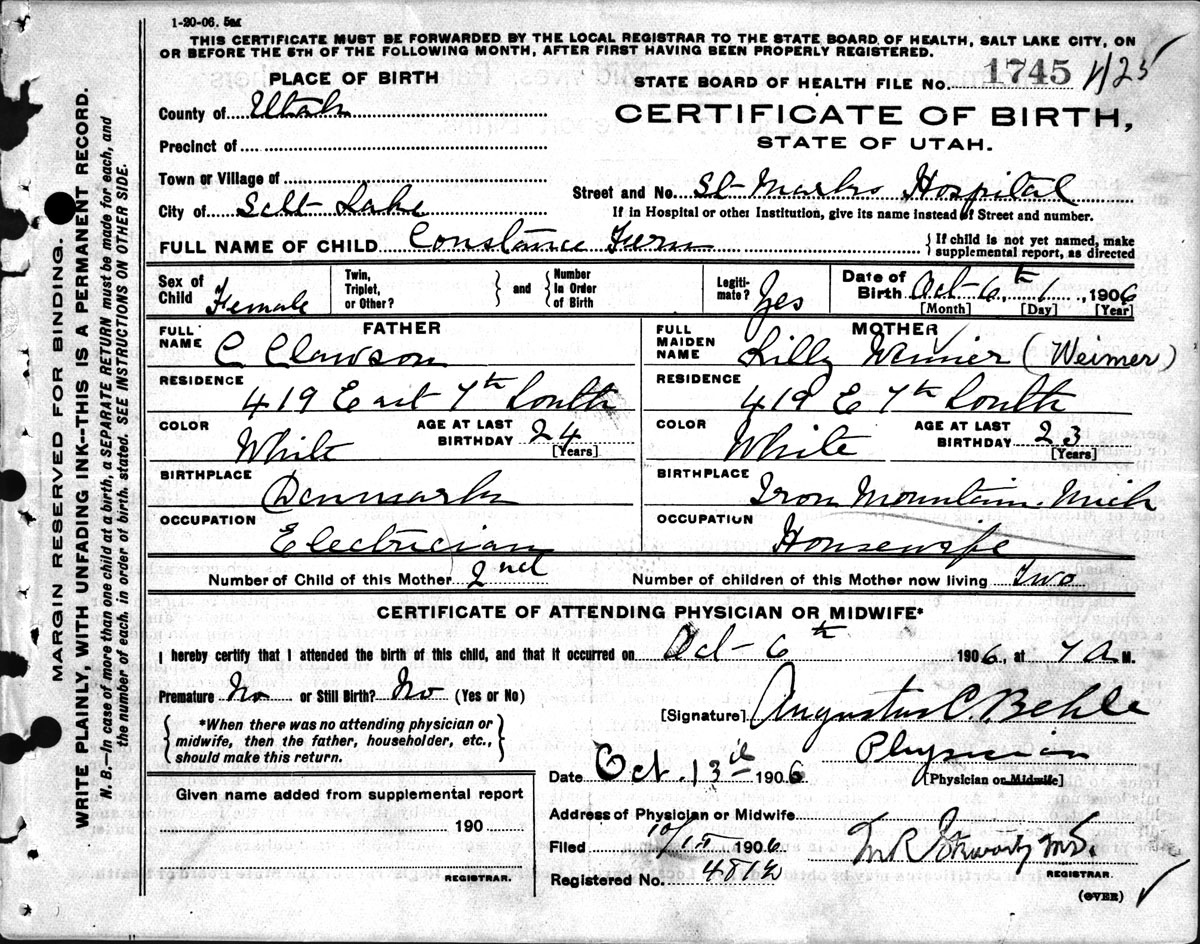 1-20-06. 5M
THIS CERTIFICATE MUST BE FORWARDED BY THE LOCAL REGISTRAR TO THE STATE BOARD OF HEALTH, SALT LAKE CITY, ON
OR BEFORE THE 5TH OF THE FOLLOWING MONTH, AFTER FIRST HAVING BEEN PROPERLY REGISTERED.
PLACE OF BIRTH
STATE BOARD OF HEALTH FILE NO. 1745
CERTIFICATE OF BIRTH,
STATE OF UTAH.
County of Utah
Precinct of
Town or Village of
City of Salt Lake
Street and No. St Marks Hospital
If in Hospital or other Institution, give its name instead of Street and number.
FULL NAME OF CHILD Constance Fern
{If child is not yet named, make
supplemental report, as directed
Sex of Child Female
Twin, Triplet, or Other? } and { Number In Order of Birth
Legitimate? Yes
Date of Birth Oct 6th, 1, 1906
[Month] [Day] [Year]
FATHER
FULL NAME C Clawson
RESIDENCE 419 East 7th South
COLOR White
AGE AT LAST BIRTHDAY 24
[Years]
BIRTHPLACE Denmark
OCCUPATION Electrician
MOTHER
FULL MAIDEN NAME Lilly Weimer (Weimer)
RESIDENCE 419 E 7th South
COLOR White
AGE AT LAST BIRTHDAY 23
[Years]
BIRTHPLACE Iron Mountain Mich
OCCUPATION Housewife
Number of Child of this Mother 2nd
Number of children of this Mother now living Two
CERTIFICATE OF ATTENDING PHYSICIAN OR MIDWIFE*
I hereby certify that I attended the birth of this child, and that it occurred on Oct 6th 1906, at 7 A M.
Premature No or Still Birth? No (Yes or No)
{*When there was no attending physician or
midwife, then the father, householder, etc.,
should make this return.}
[Signature] Augustus C. Behle
Physician
[Physician or Midwife]
Date Oct. 13 1906
Given name added from supplemental report
190
REGISTRAR.
Address of Physician or Midwife
Filed 1906
Registered No. 4812
M.D.
REGISTRAR.
(OVER)
MARGIN RESERVED FOR BINDING.
WRITE PLAINLY, WITH UNFADING INK--THIS IS A PERMANENT RECORD.
N. B.—In case of more than one child at a birth, a SEPARATE RETURN must be made for each, and
the number of each, in order of birth, stated. SEE INSTRUCTIONS ON OTHER SIDE.